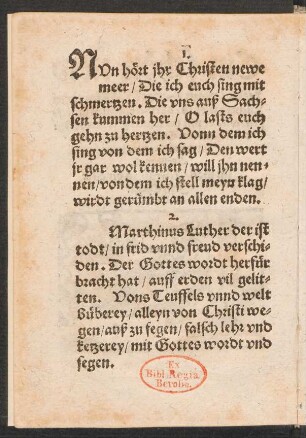 1.
NVn hört jhr Christen newe
meer / Die ich euch sing mit
schmertzen. Die vns auß Sach-
sen kummen her / O lasts euch
gehn zu hertzen. Vonn dem ich
sing von dem ich sag / Den wert
jr gar wol kennen / will jhn nen-
nen / von dem ich stell meyn klag /
wirdt gerümbt an allen enden.
2.
Marthinus Luther der ist
todt / in frid vnnd freud verschi-
den. Der Gottes wordt herfür
bracht hat / auff erden vil gelit-
ten. Vons Teuffels vnnd welt
Büberey / alleyn von Christi we-
gen / auß zu fegen / falsch lehr vnd
ketzerey / mit Gottes wordt vnd
segen.
Ex
Bibl. Regia
Berolin.